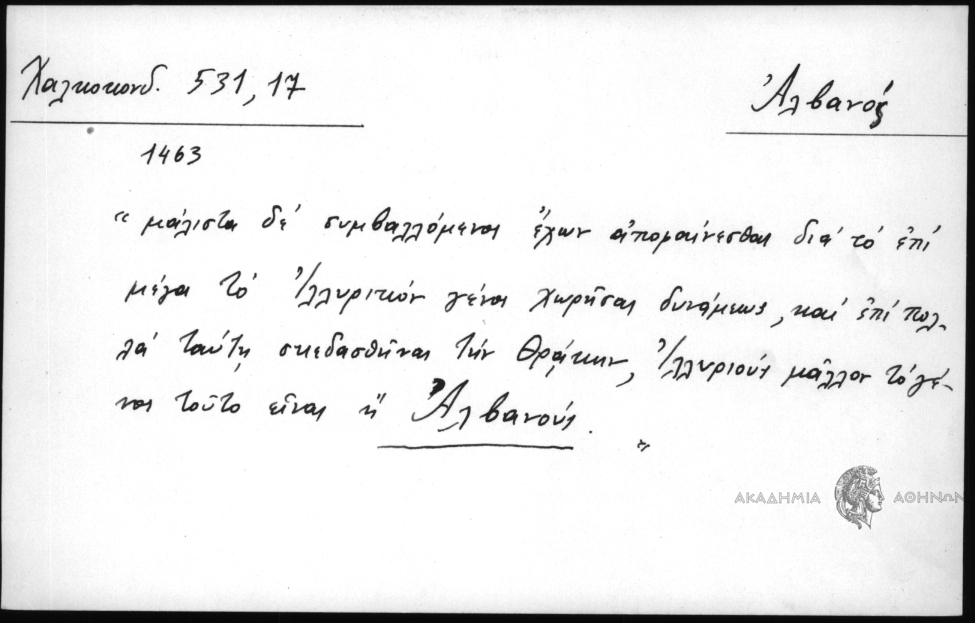 Χαλκοκονδ. 531, 17
Ἀλβανός
1463
“ μάλιστα δέ συμβαλλόμενος ἔχων ἀποφαίνεσθαι διά τό ἐπί
μέγα τό Ἰλλυρικόν γένος χωρῆσαι δυνάμεως, καί ἐπί πολ-
λά ταύτῃ σκεδασθῆναι τήν Θρᾴκην, Ἰλλυριούς μᾶλλον τό γέ-
νος τοῦτο εἶναι ἤ Ἀλβανούς. ”
ΑΚΑΔΗΜΙΑ ΑΘΗΝΩΝ